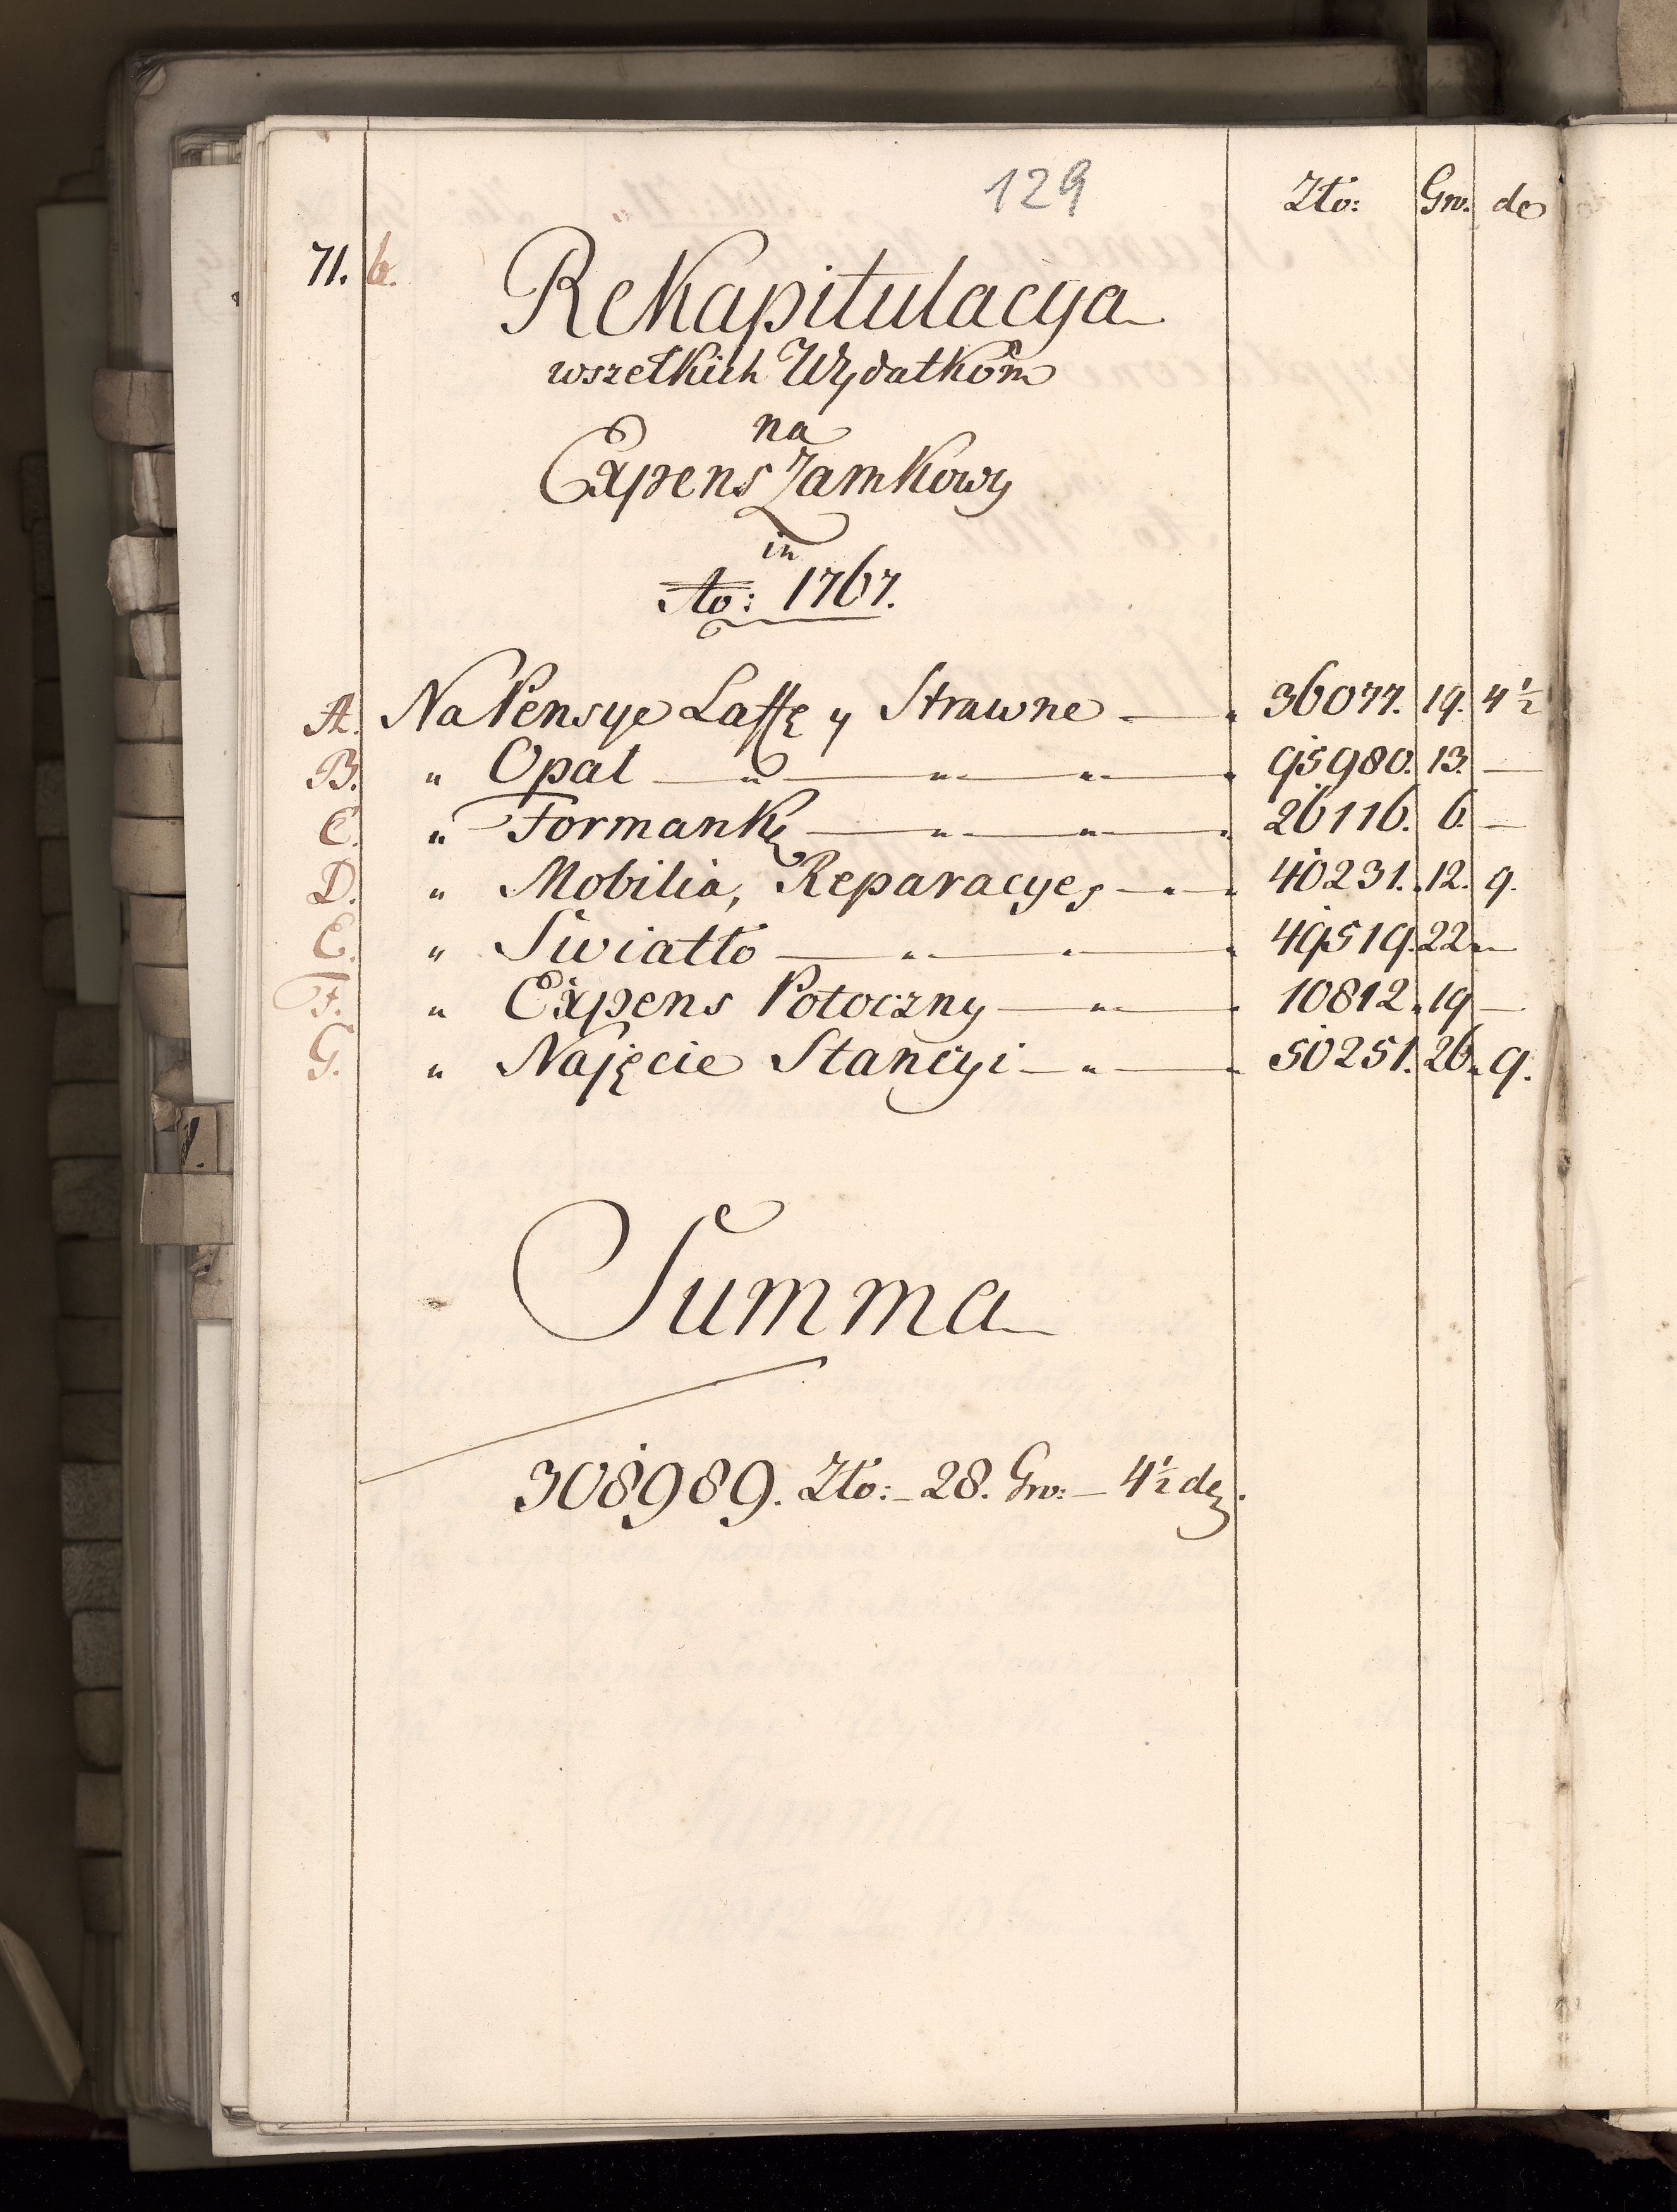 129
Zło: Gro. de
71. b.
Rekapitulacya
wszelkich Wydatkow
na
Expens Zamkowy
in
Ao: 1767.
A. Na Pensye Laffę y Strawne — 36077. 19. 4½
B. " Opał — " — " — " — 95980. 13. —
C. " Formankę — " — " — 26116. 6. —
D. " Mobilia, Reparacye, — " — 40231. 12. 9.
E. " Swiatło — " — " — 49519. 22 —
F. " Expens Potoczny — " — 10812. 19 —
G. " Najęcie Stancyi — " — 50251. 26. 9.
Summa
308989. Zło: — 28. Gro: — 4½ de.